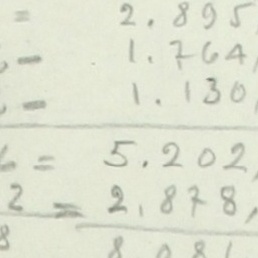 = 2.895,
- 1.764,
- 1.130,
= 5.202,
2 = 2.878,
8 8 081